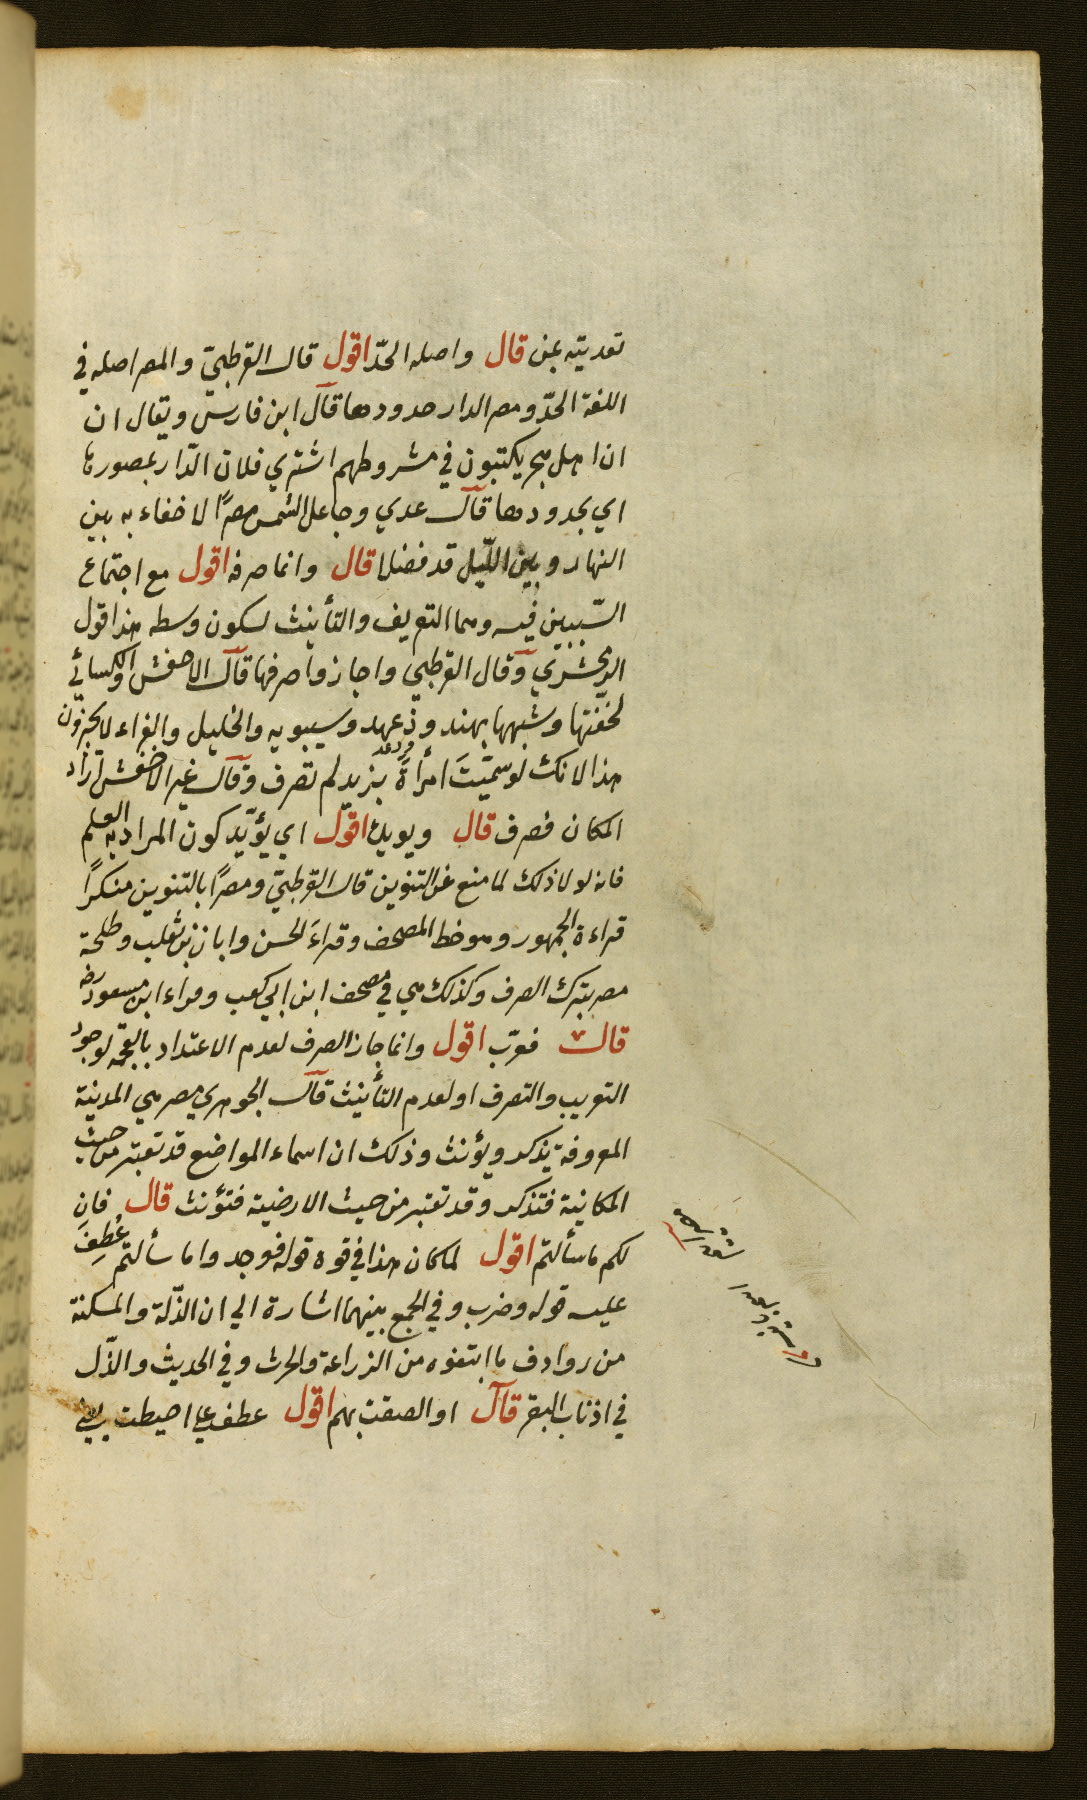 تعديته بمن قال واصله الحدّ اقول قال القرطبيّ والمصر اصله في
اللغة الحدّ ومصر الدار حدودها قال ابن فارس ويقال ان
ان اهل هجر يكتبون في شروطهم اشتري فلان الدّار بمصورها
اي بحدودها قال عدي وجاعل الشمس مصرًا لا خفاء به بين
النهار وبين اللّيل قد فصلا قال وانما صرفه اقول مع اجتماع
السّببين فيه وهما التعريف والتأنيث لسكون وسطه هذا قول
الزمخشريّ وقال القرطبي واجازوا صرفها قال الاخفش والكسائي
لخفّتها وشبهها بهند ودعد وسيبويه والخليل والفراء لا يجيزون
هذا لانك لو سميّتَ امرأةً بزيد لم تصرف وقال غير الاخفش اراد
المكان فصرف قال ويويده اقول اي يؤيّد كون المراد به العلم
فانه لولا ذلك لما منع عن التنوين قال القرطبيّ ومصرًا بالتنوين منكرًا
قراءة الجمهور وهو خط المصحف وقراءَ الحسن وابان بن ثعلب وطلحة
مصر بترك الصرف وكذلك هي في مصحف ابن ابي كعب وقراءة ابن مسعود رضه
قال فعرّب اقول وانما جاز الصرف لعدم الاعتداد بالعجمة لوجود
التعريب والتصرف او لعدم التأنيث قال الجوهري مصر هي المدينة
المعروفة يذكر ويؤنث وذلك ان اسماء المواضع قد تعتبر من حيث
المكانية فتذكر وقد تعتبر من حيث الارضية فتؤنث قال فان
لكم ما سألتم اقول لما كان هذا في قوة قوله فوجدوا ما سألتم عُطِفَ
عليه قوله وضرب وفي الجمع بينهما اشارة الي ان الذّلة والمسكنة
من روادف ما ابتغوه من الزراعة والحرث وفي الحديث والذّل
في اذناب البقر قال او الصقت بهم اقول عطف علي احيطت يعني